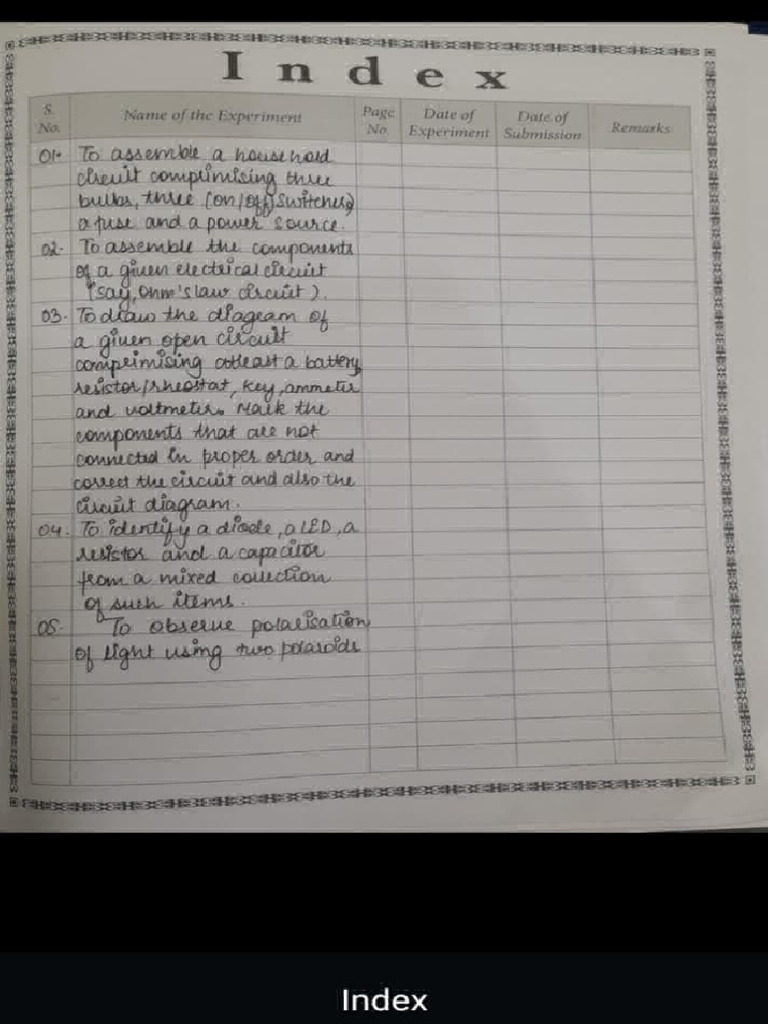 Index
S. No. Name of the Experiment Page No. Date of Experiment Date of Submission Remarks
01. To assemble a household
circuit comprimising three
bulbs, three (on/off) switches,
a fuse and a power source.
02. To assemble the components
of a given electrical circuit
(say, Ohm's law circuit).
03. To draw the diagram of
a given open circuit
comprimising atleast a battery,
resistor/rheostat, key, ammeter
and voltmeter. Mark the
components that are not
connected in proper order and
correct the circuit and also the
circuit diagram.
04. To identify a diode, a LED, a
resistor and a capacitor
from a mixed collection
of such items.
05. To observe polarisation
of light using two polaroids
Index